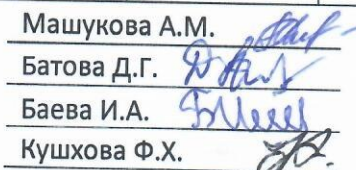 Машукова А.М.
Батова Д.Г.
Баева И.А.
Кушхова Ф.Х.